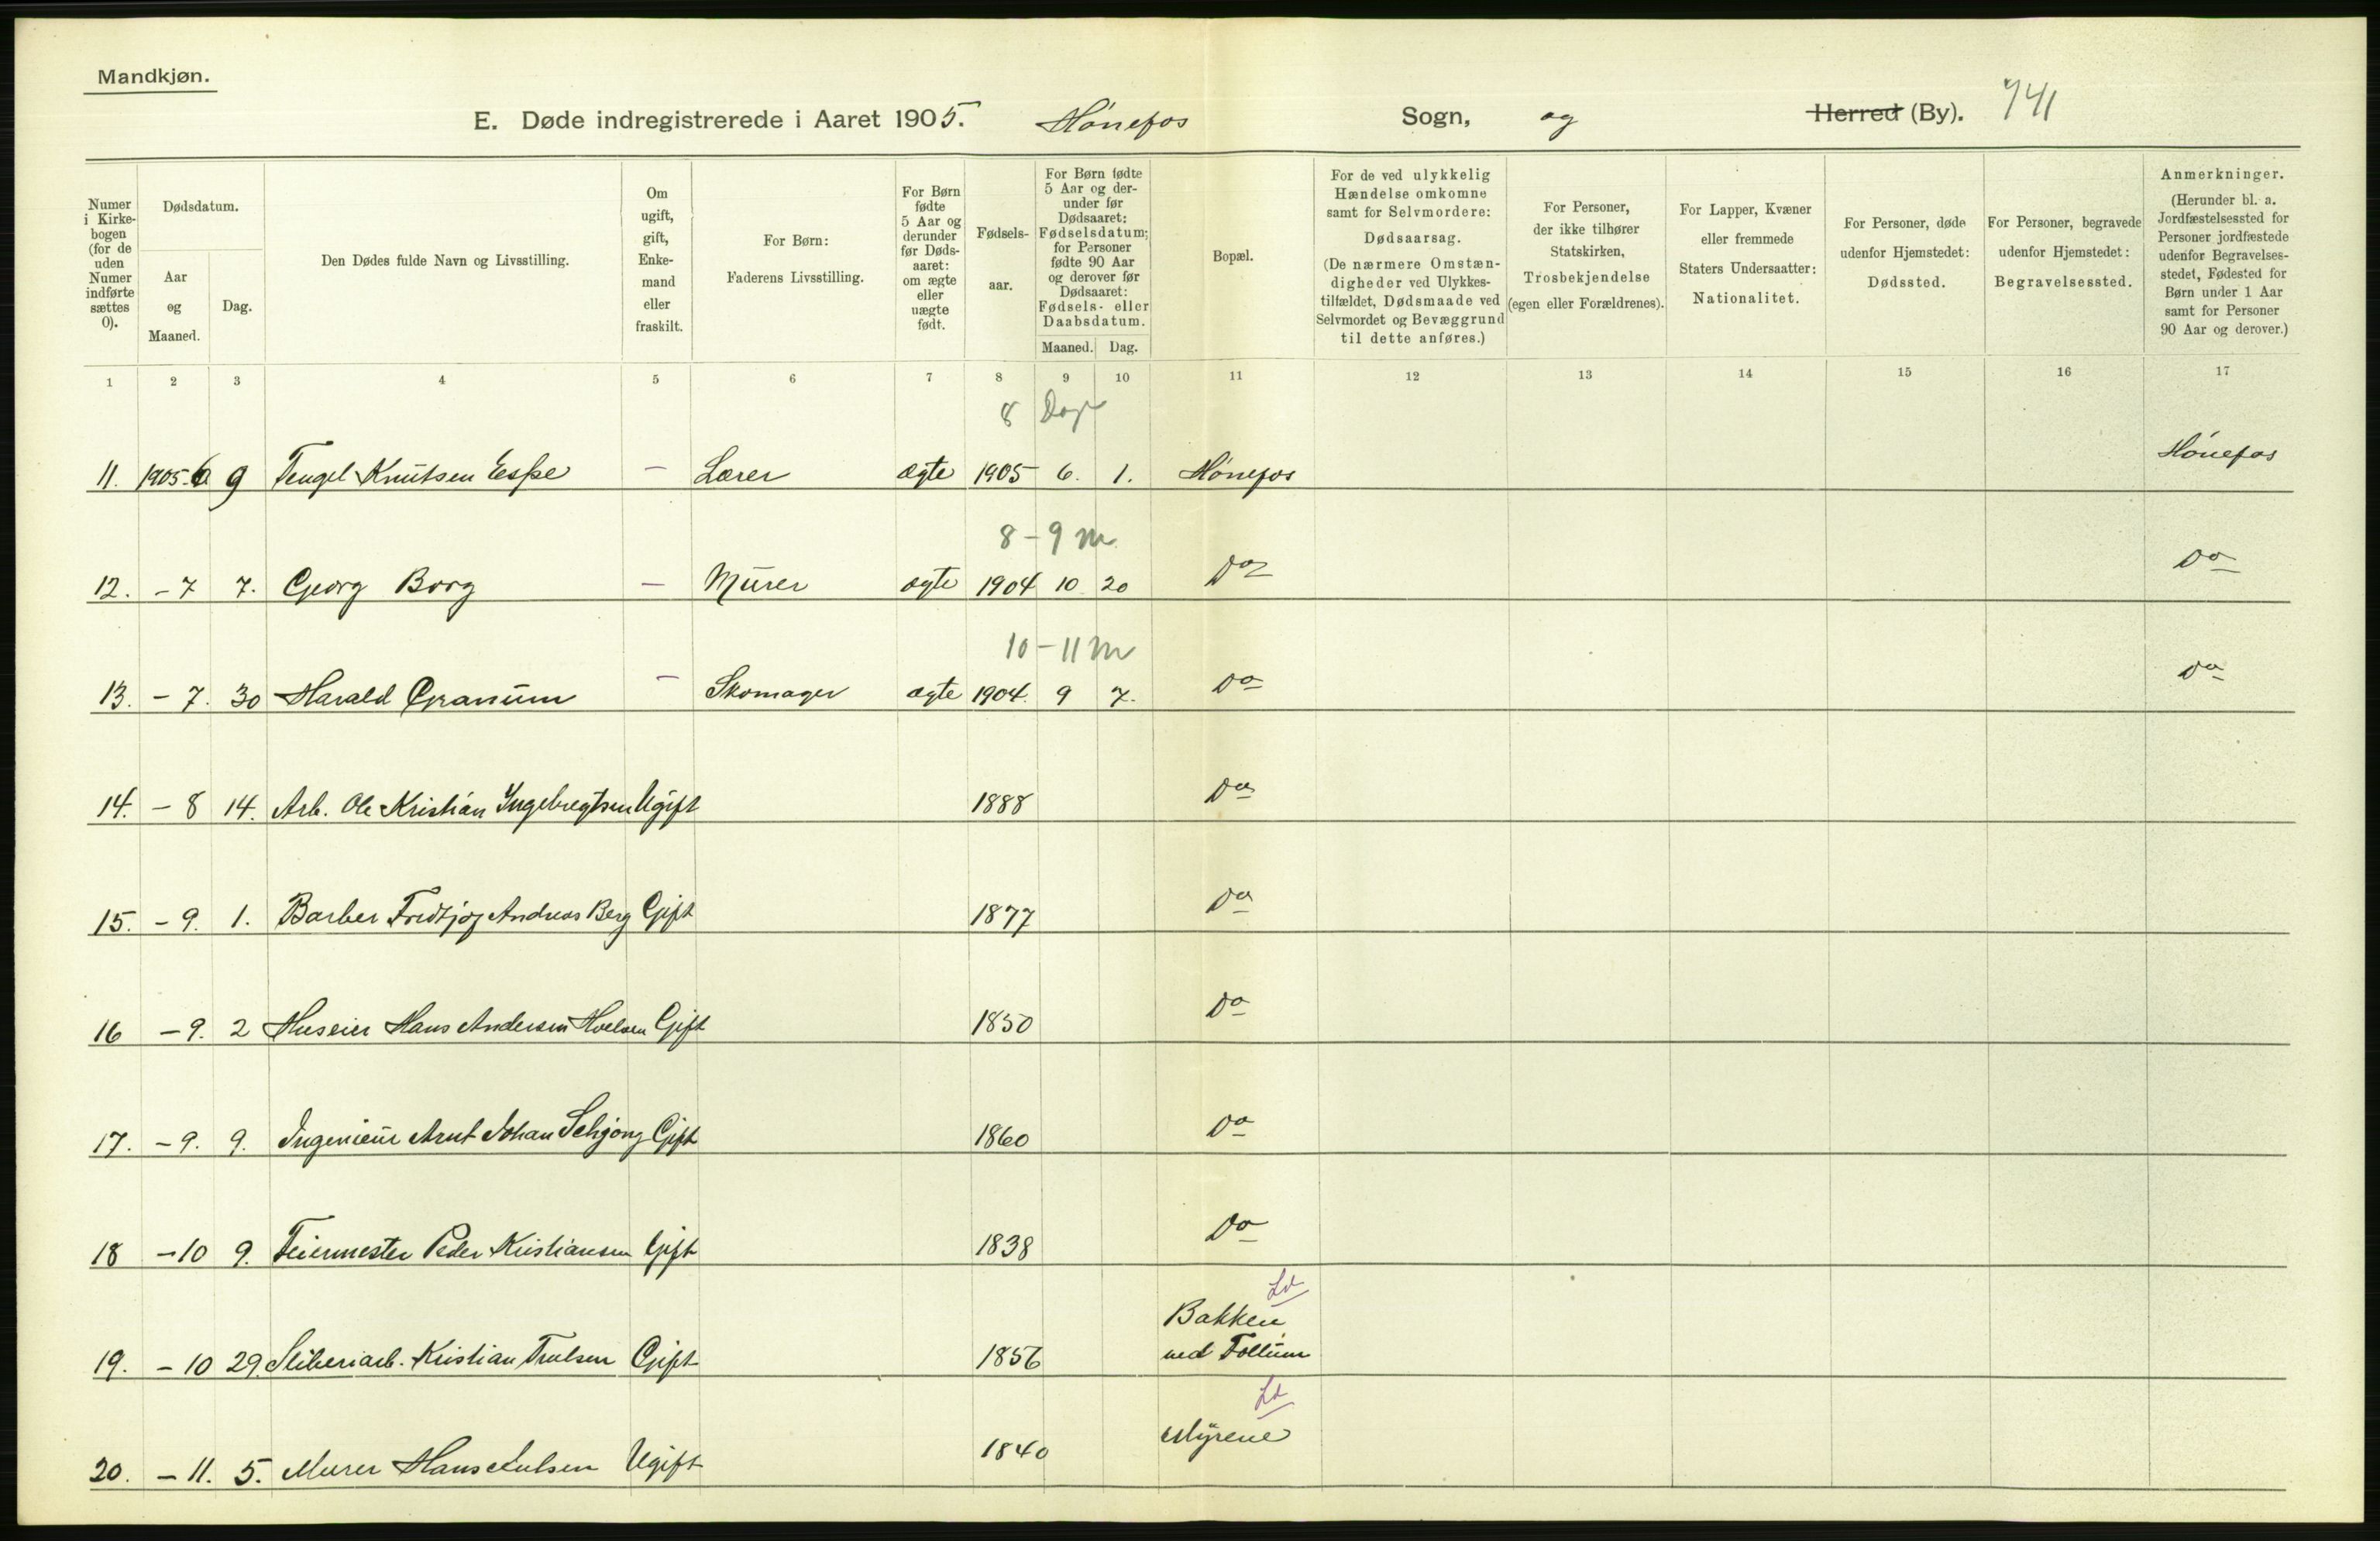 Mandkjøn.
E. Døde indregistrerede i Aaret 1905. Hønefos Sogn, og Herred (By). 741
Numer i Kirkebogen (for de uden Numer indførte sættes 0).
Dødsdatum.
Aar og Maaned.
Dag.
Den Dødes fulde Navn og Livsstilling.
Om ugift, gift, Enkemand eller fraskilt.
For Børn: Faderens Livsstilling.
For Børn fødte 5 Aar og derunder før Dødsaaret: om ægte eller uægte født.
Fødselsaar.
For Børn fødte 5 Aar og derunder før Dødsaaret: Fødselsdatum; for Personer fødte 90 Aar og derover før Dødsaaret: Fødsels- eller Daabsdatum.
Maaned. Dag.
Bopæl.
For de ved ulykkelig Hændelse omkomne samt for Selvmordere: Dødsaarsag. (De nærmere Omstændigheder ved Ulykkestilfældet, Dødsmaade ved Selvmordet og Bevæggrund til dette anføres.)
For Personer, der ikke tilhører Statskirken, Trosbekjendelse (egen eller Forældrenes).
For Lapper, Kvæner eller fremmede Staters Undersaatter: Nationalitet.
For Personer, døde udenfor Hjemstedet: Dødssted.
For Personer, begravede udenfor Hjemstedet: Begravelsessted.
Anmerkninger. (Herunder bl. a. Jordfæstelsessted for Personer jordfæstede udenfor Begravelsesstedet, Fødested for Børn under 1 Aar samt for Personer 90 Aar og derover.)
1 2 3 4 5 6 7 8 9 10 11 12 13 14 15 16 17
8 Dage
11. 1905-6 9 Tengel Knutsen Espe – Lærer ægte 1905 6. 1. Hønefos Hønefos
8 – 9 m
12. – 7 7. Georg Borg – Murer ægte 1904 10 20 Do Do
10 – 11 m
13. – 7. 30 Harald Granum – Skomager ægte 1904. 9 7. Do Do
14. – 8 14. Arb. Ole Kristian Ingebregtsen Ugift 1888 Do
15. – 9. 1. Barber Fridtjof Andreas Berg Gift 1877 Do
16 – 9. 2 Huseier Hans Andersen Gift 1850 Do
17. – 9. 9. Ingeniør Arnt Johan Gift 1860 Do
18 – 10 9. Feiermester Peder Kristiansen Gift 1838 Do
Ld
Bakken
19. – 10 29. Sliberiarb. Kristian Trulsen Gift 1856 ved Follum
Ld
20. – 11. 5. Murer Hans Ugift 1840 Myrene